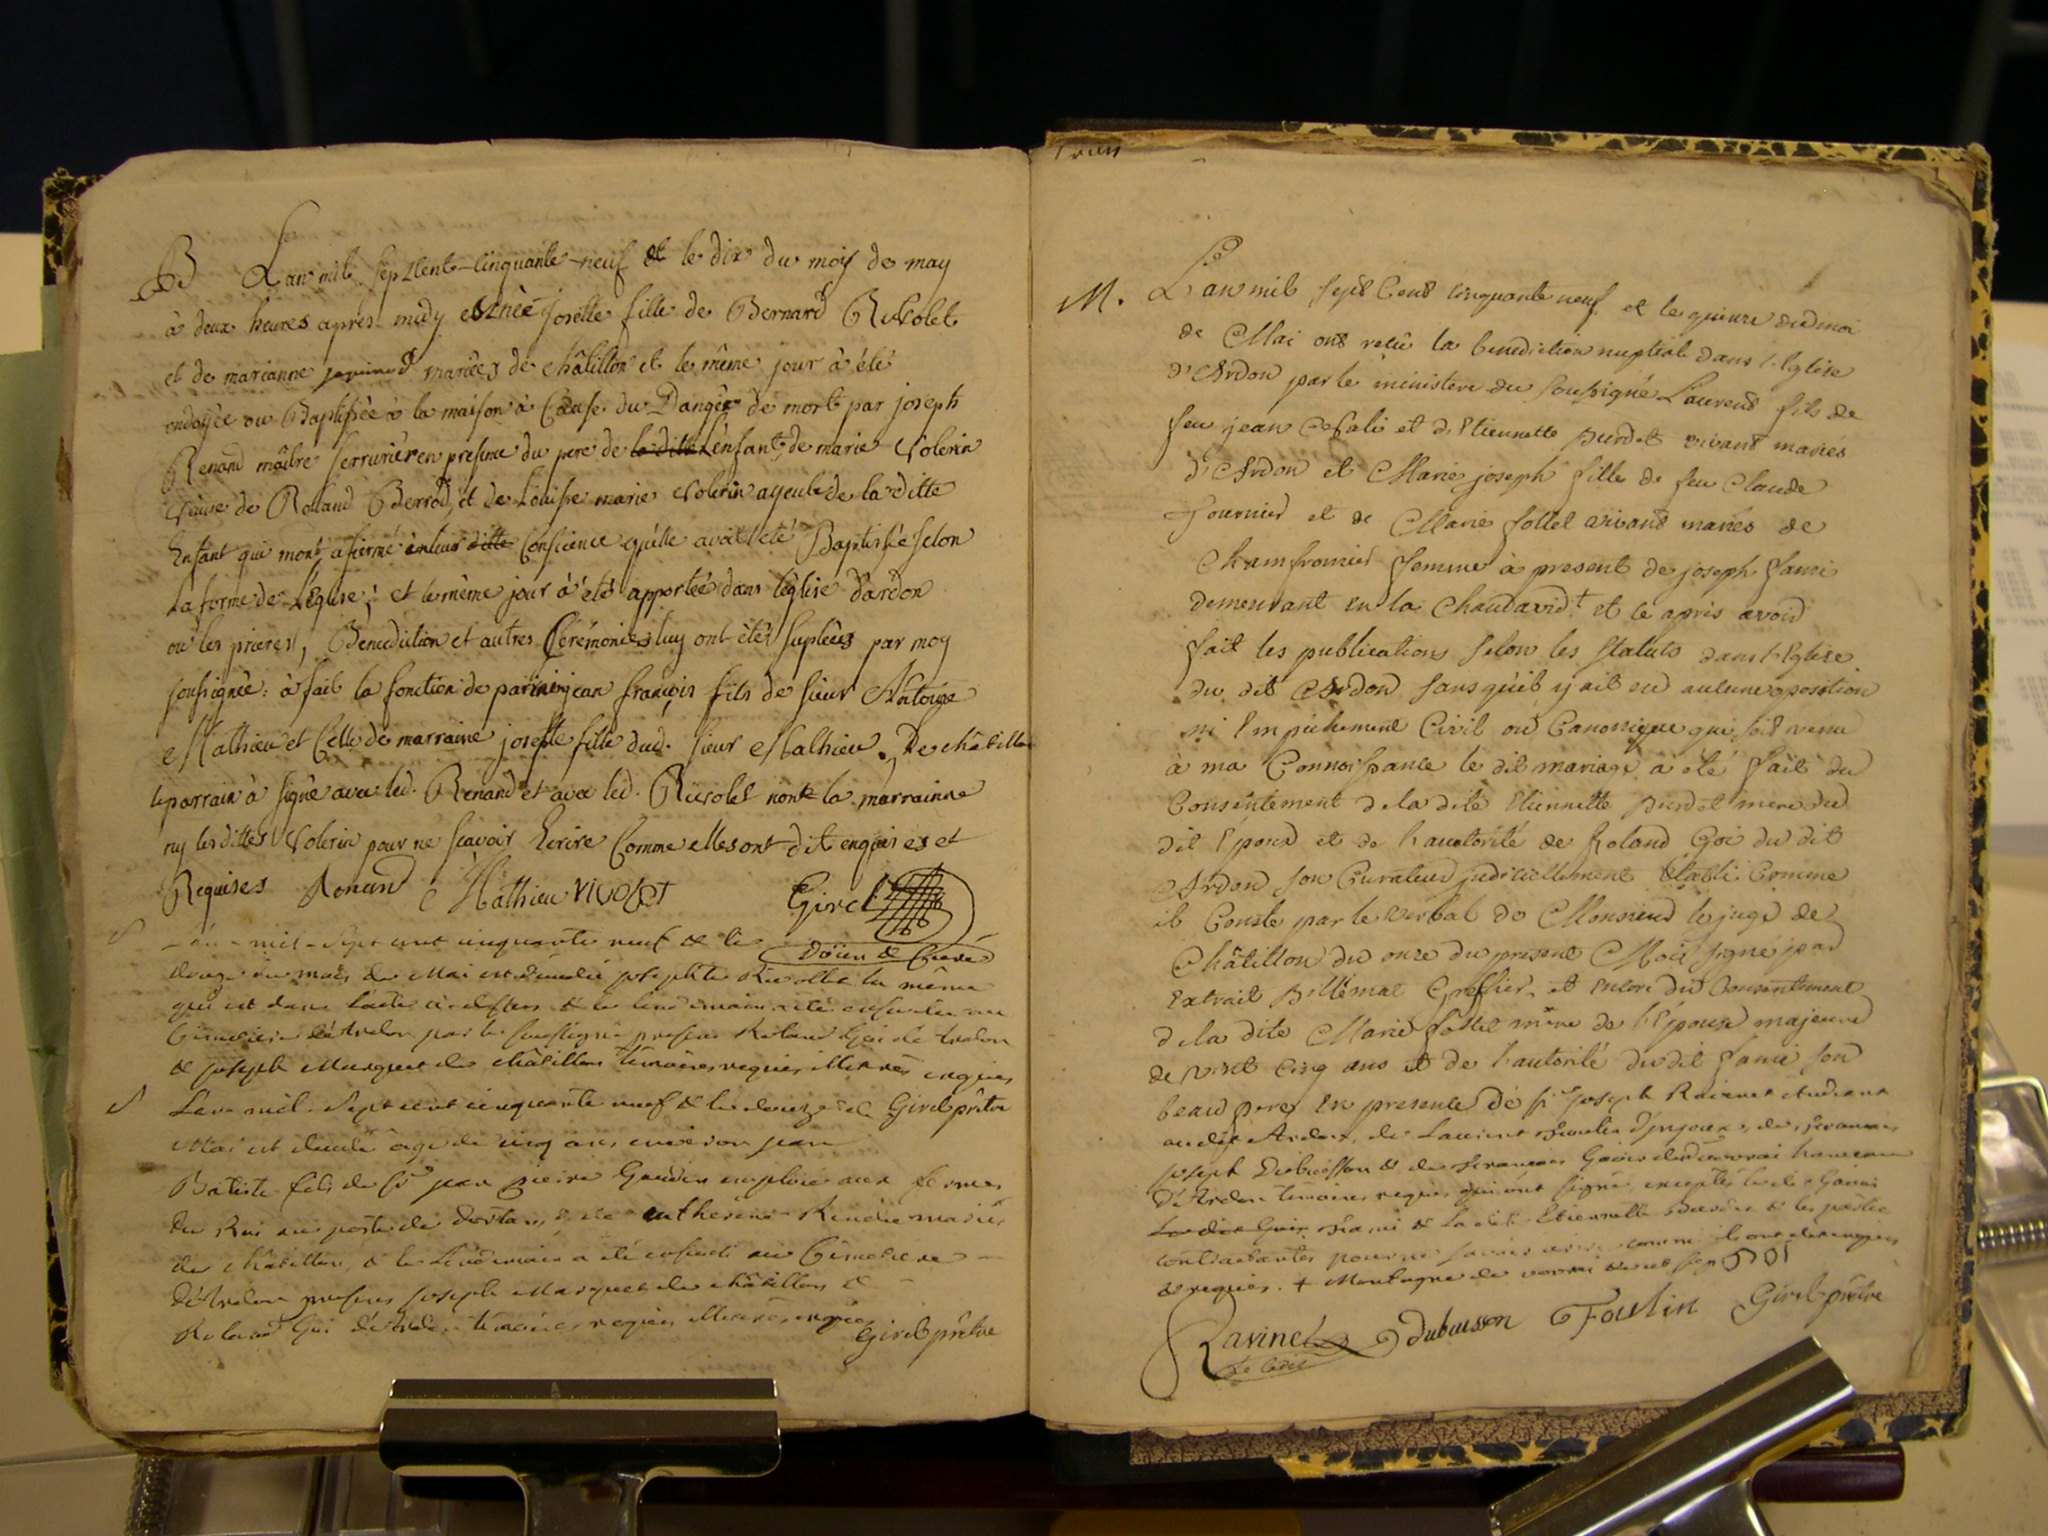 B L'an mil sept Cent-Cinquante-neuf et le dix du mois de may
à deux heures apres midy est née Josette fille de Bernard Rivolet
et de marianne mariées de châtillon et le même jour à été
ondoyée ou Baptissée à la maison à Cause du Danger de mort par joseph
Renand maître serrurier en presence du pere de la ditte L'enfant, de marie Volerin
veuve de Rolland Berrod, et de Louisse marie Volerin ayeule de la ditte
Enfant qui mont afirmé en leur ditte Conscience quelle avoit été Baptissée selon
la forme de L'Eglise; et le même jour à étés apportée dans léglise d'ardon
où les prieres, Benediction et autres Cérémonies luy ont étés suplées par moy
soussignée: à fait la fonction de parin jean françois fils de sieur Antoine
Mathieu et Celle de marraine josette fille dud. sieur Mathieu. De châtillon
le parrain à signé avec led. Renand et avec led. Rivolet non la marrainne
ny les dittes Volerin pour ne sçavoir Ecrire Comme elles ont dit enquises et
Requises Renand Mathieu rivolet Girel
Doïen & Curé
S L'an mil sept cent cinquante neuf & le
douze du mois de Mai est décédée josephte Rivollet la même
qui est dans l'acte ci dessus & le lendemain a été ensevelie au
Cimetiere d'Ardon par le soussigné presens Roland Goi de Ardon
& joseph Marquet de châtillon témoins requis illiterés enquis
Girel prêtre
S L'an mil sept cent cinquante neuf & le douze de
Mai est décédé âgé de cinq ans environ jean
Batiste fils de Sr jean pierre Gaudin emploié aux fermes
du Roi au poste de & de Catherine mariés
de châtillon, & le Lendemain a été enseveli au Cimetiere
d'Ardon presens joseph Marquet de châtillon &
Roland Goi d'Ardon témoins requis illiterés enquis
Girel prêtre
M. L'an mil sept Cent cinquante neuf et le quinze du moi
de Mai ont reçu la benediction nuptiale dans l'Eglise
d'Ardon par le ministere du soussigné Laurent fils de
feu jean et d'Etiennette vivant mariés
d'Ardon et Marie joseph fille de feu Claude
Tournier et de Marie follet vivant mariés de
Chamfromier femme à present de joseph famі
demeurant en la Chandavid + et ce apres avoir
fait les publications selon les statuts dans l'Eglise
du dit Ardon sans qu'il y ait eu aucune oposition
ni Empêchement Civil ou Canonique qui soit venu
à ma Connoissance le dit mariage a été fait du
Consentement de la dite Etiennette mere du
dit Epoux et de l'autorité de Roland Goi du dit
Ardon son Curateur judiciellement établi Comme
il Conste par le verbal de Monsieur le juge de
Châtillon du onze du present Mois signé par
Extrait Billiemat Greffier et encore du Consentement
de la dite Marie follet mere de l'Epouse majeure
de vint cinq ans et de l'autorité du dit son
beau pere En presence de Sr joseph Ravinet etudiant
audit Ardon, de Laurent d'injoux, de françois
joseph Dubuisson & de françois
d'Ardon témoins requis qui ont signé exceptés
& la dite Etiennette & les parties
contractantes pour ne savoir ecrire comme ils ont dit enquis
& requis. + Montagne de
Ravinet Dubuisson Foulin Girel prêtre